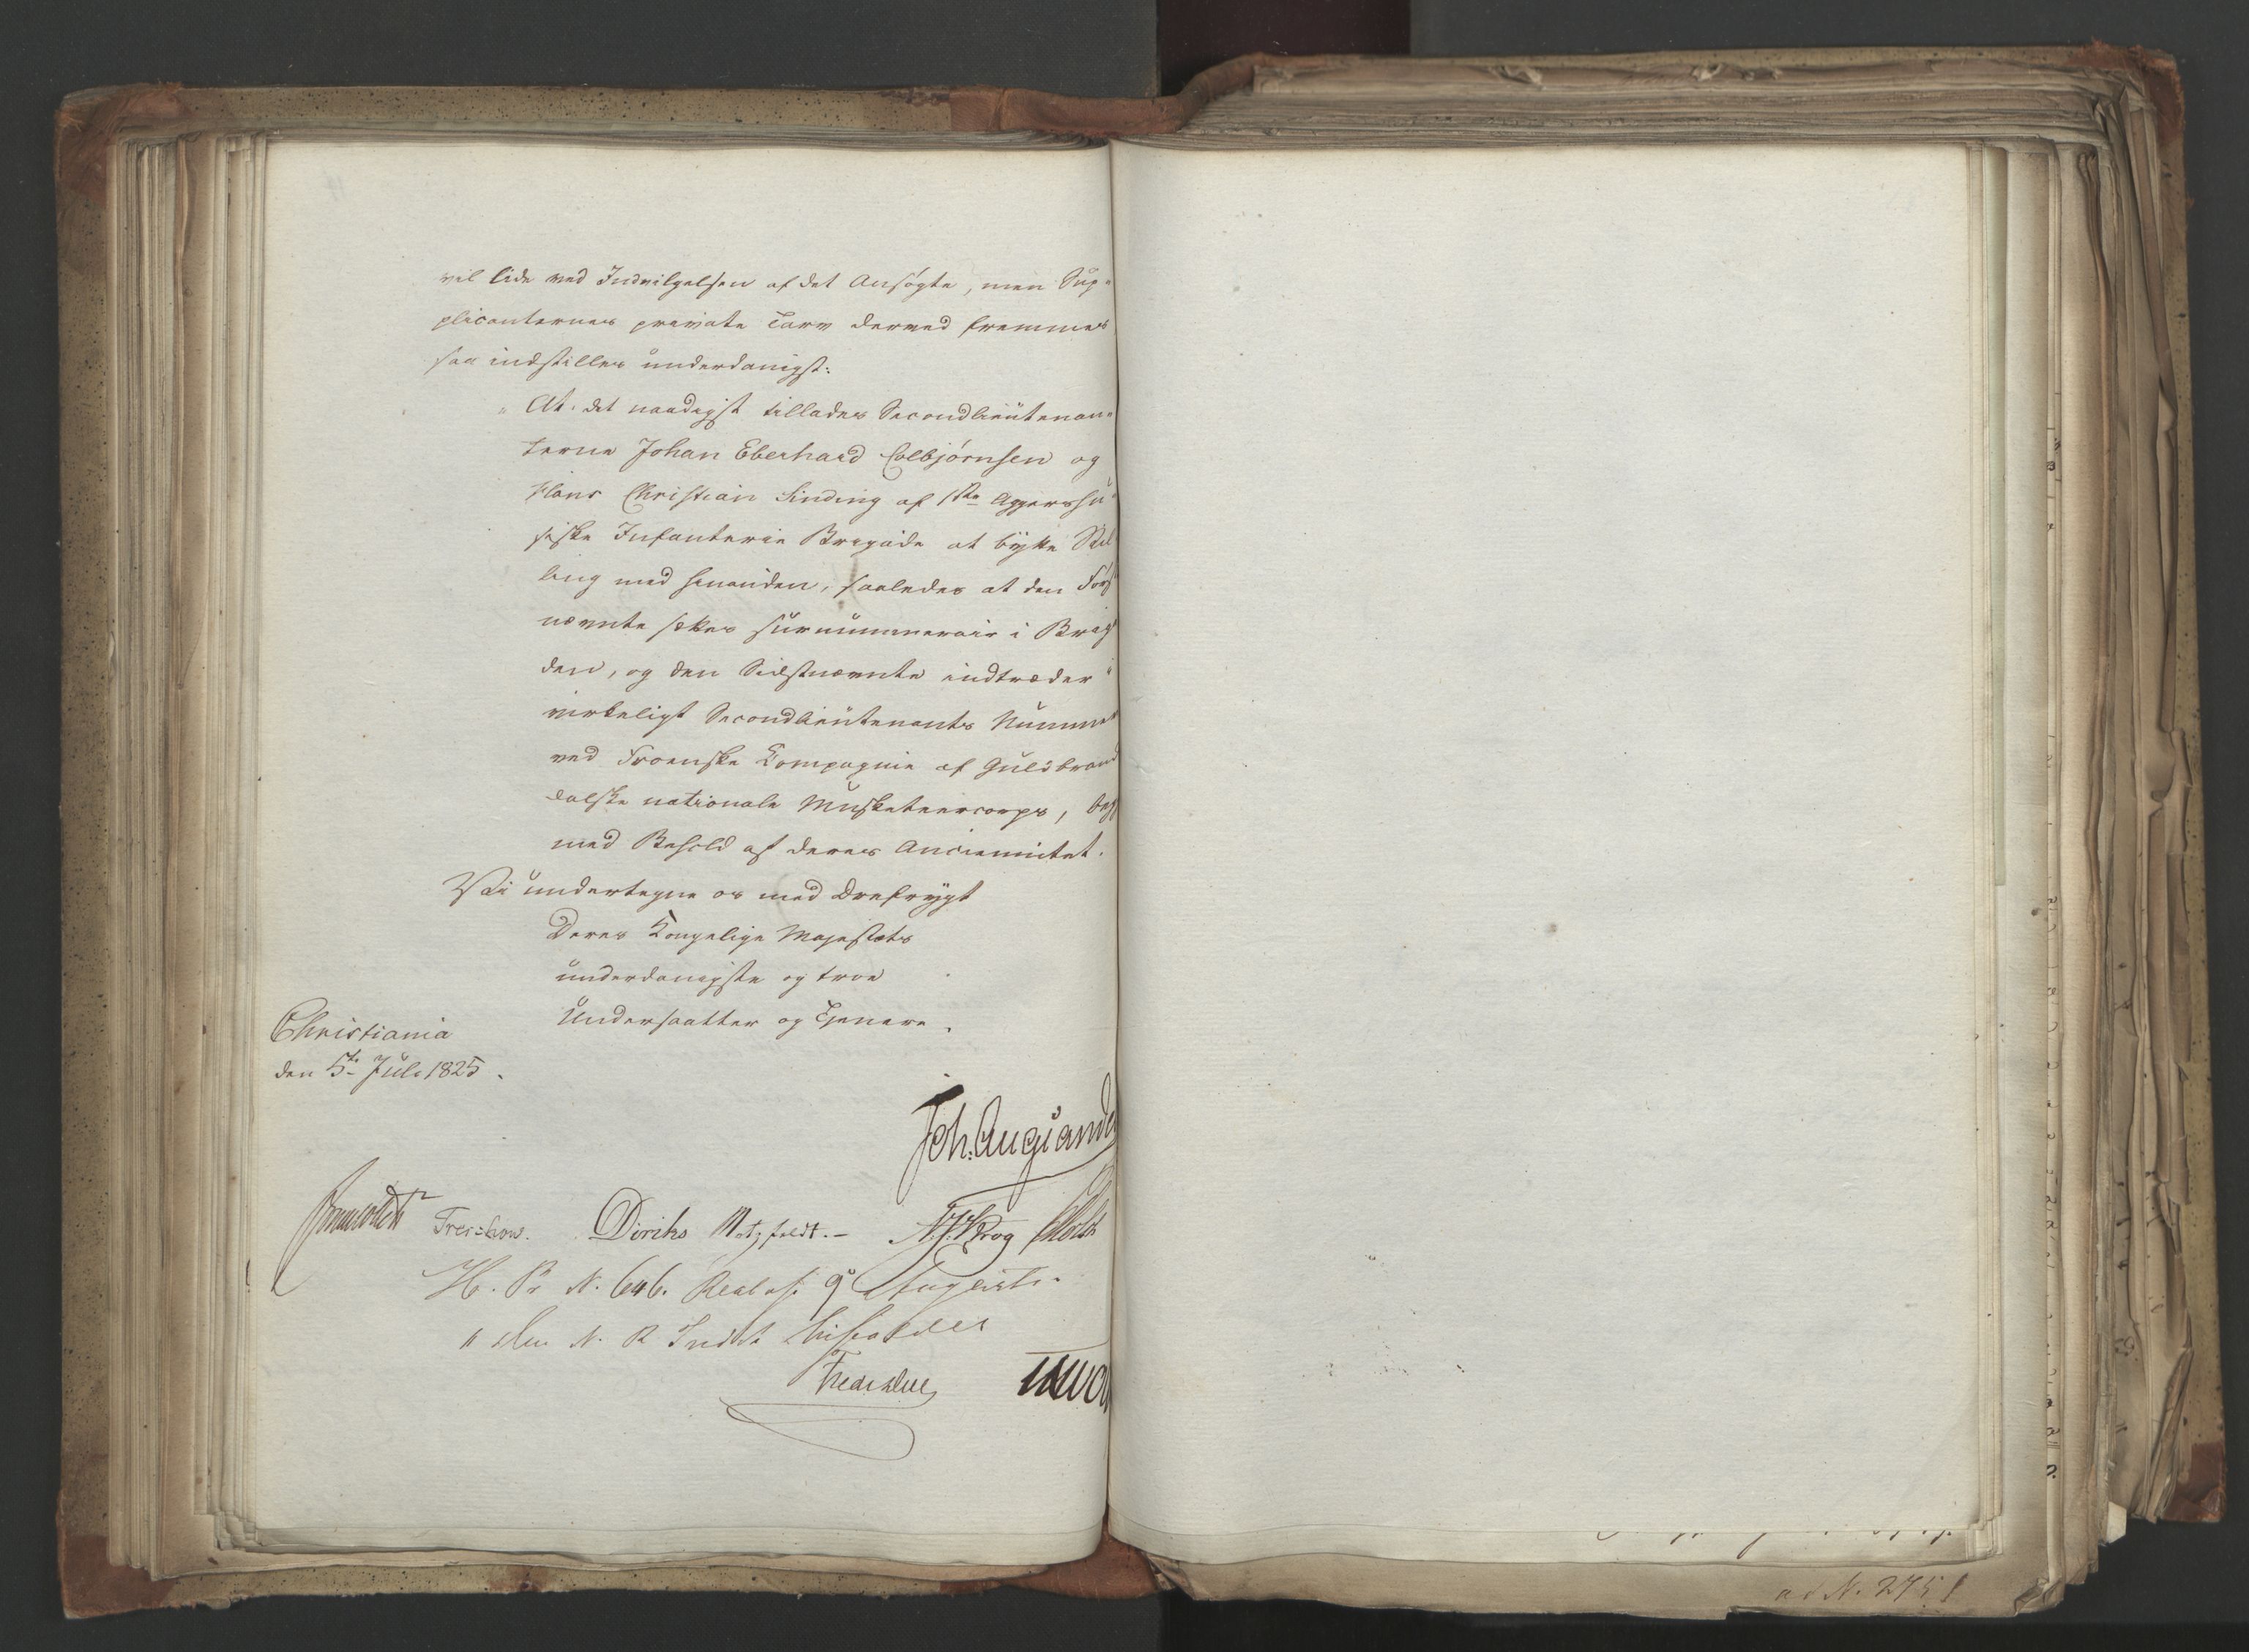 vil lide ved Indvilgelsen af det Ansøgte, men Sup-
plicanternes private Tarv derved fremmes
saa indstilles underdanigst:
" At det naadigst tillades Secondlieutenan-
terne Johan Eberhard Colbjørnsen og
Hans Christian Sinding af 1ste Aggershu-
siske Infanterie Brigade at bytte Stil
ling med hinanden, saaledes at den Først
nævnte sættes surnummerair i Briga
den, og den Sidstnævnte indtræder i
virkeligt Secondlieutenants Nummer
ved Froenske Compagnie af Guldbrand
dalske nationale Musketeercorps, Begge
med Behold af deres Anciennitet.
Vi undertegne os med Ærefrygt
Deres Kongelige Majestæts
underdanigste og troe
Undersaatter og Tjenere.
Christiania
den 5te Juli 1825.
Joh. Aug Sande
Jonas Collett Treschow. Diriks Motzfeldt.- Krog Holst
N. 646. 9 Augusti
N. R Indst bifaldes
Fredr Due
ad N. 2751